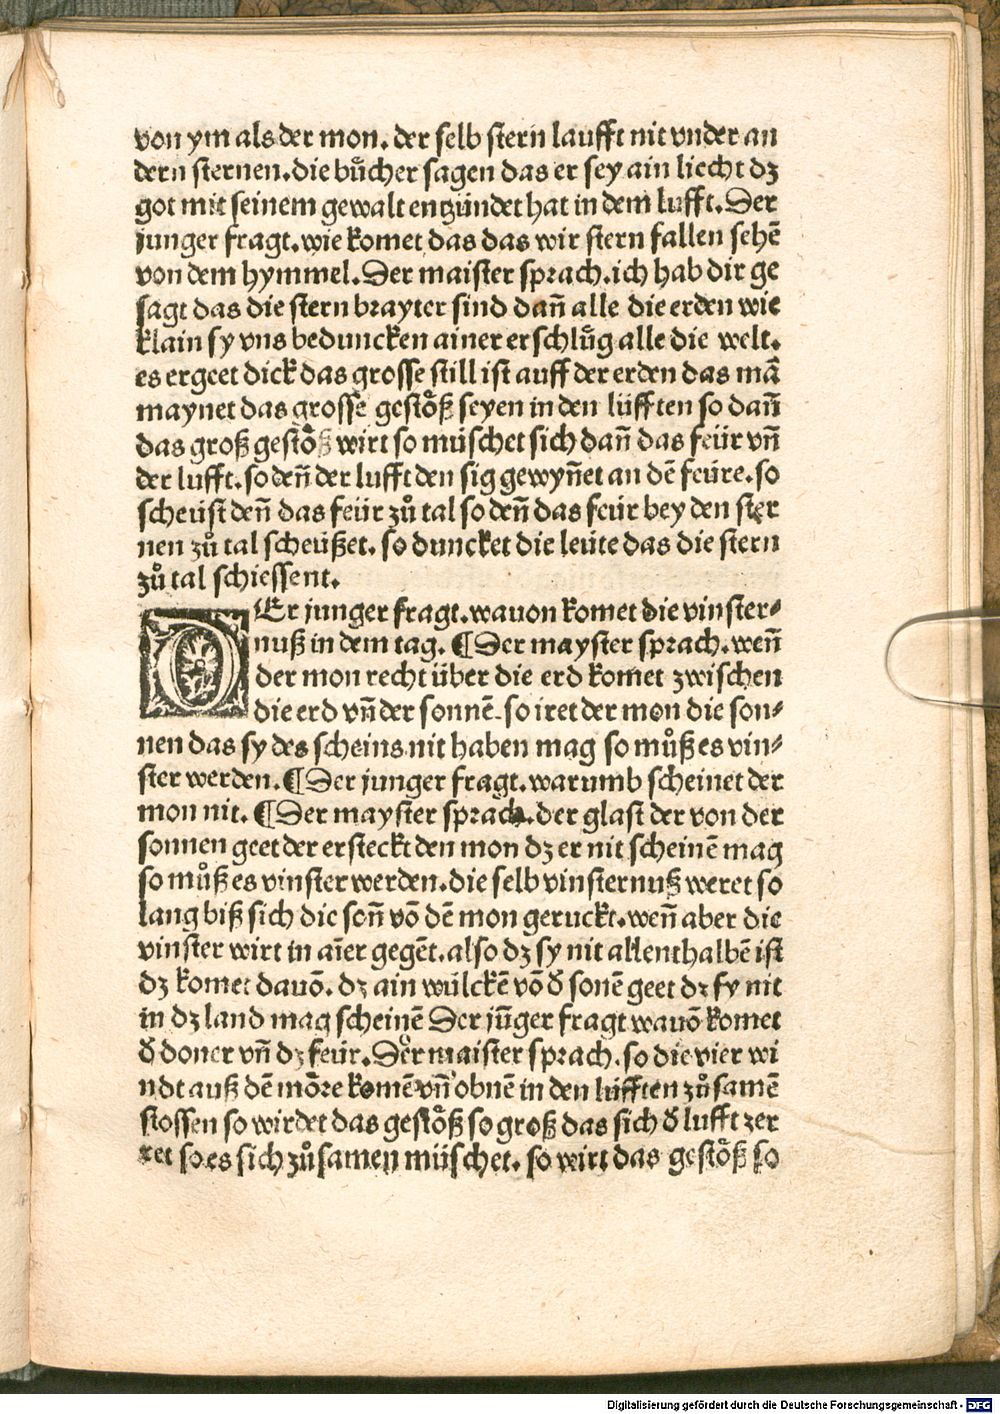 von ym als der mon. der selb stern laufft nit vnder an
dern sternen. die bůcher sagen das er sey ain liecht dz
got mit seinem gewalt entzündet hat in dem lufft. Der
junger fragt. wie komet das das wir stern fallen sehē
von dem hymmel. Der maister sprach. ich hab dir ge
sagt das die stern brayter sind dañ alle die erden wie
klain sy vns beduncken ainer erschlůg alle die welt.
es ergeet dick das grosse still ist auff der erden das mā
maynet das grosse gestöß seyen in den lüfften so dañ
das groß gestöß wirt so müschet sich dañ das feür vñ
der lufft. so deñ der lufft den sig gewyñet an dē feüre. so
scheüst deñ das feür zů tal so deñ das feür bey den ster
nen zů tal scheüßet. so duncket die leüte das die stern
zů tal schiessent.
DEr junger fragt. wauon komet die vinster⸗
nuß in dem tag. ¶ Der mayster sprach. weñ
der mon recht über die erd komet zwischen
die erd vñ der sonnē. so iret der mon die son⸗
nen das sy des scheins nit haben mag so můß es vin⸗
ster werden. ¶ Der junger fragt. warumb scheinet der
mon nit. ¶ Der mayster sprach. der glast der von der
sonnen geet der ersteckt den mon dz er nit scheinē mag
so můß es vinster werden. die selb vinsternuß weret so
lang biß sich die soñ vō dē mon geruckt. weñ aber die
vinster wirt in aīer gegēt. also dz sy nit allenthalbē ist
dz komet dauō. dz ain wülckē vō đ sonē geet dz sy nit
in dz land mag scheinē Der jūger fragt wauō komet
đ doner vñ dz feür. Der maister sprach. so die vier wi
ndt auß dē mōre komē vñ obnē in den lüfften zůsamē
stossen so wirdet das gestöß so groß das sich đ lufft zer
ret so es sich zůsamen müschet. so wirt das gestöß so
Digitalisierung gefördert durch die Deutsche Forschungsgemeinschaft - DFG